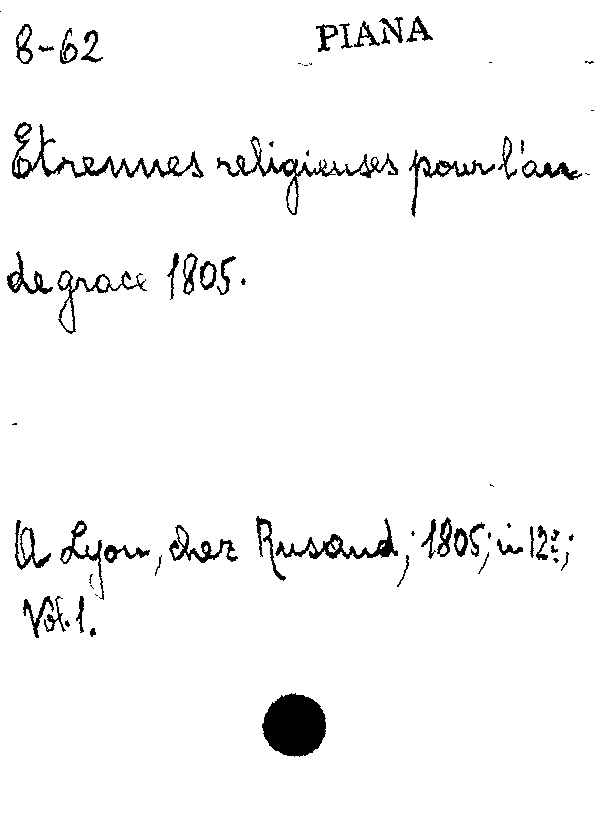 8-62 PIANA
Etrennes religieuses pour l'an
de grace 1805.
A Lyon, chez Rusand; 1805; in 12º;
Vol. 1.